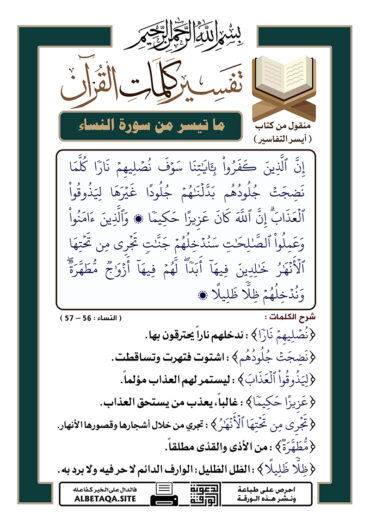 بسم الله الرحمن الرحيم
تفسير كلمات القرآن
ما تيسر من سورة النساء
منقول من كتاب
( أيسر التفاسير )
إِنَّ ٱلَّذِينَ كَفَرُواْ بِـَٔايَٰتِنَا سَوۡفَ نُصۡلِيهِمۡ نَارٗا كُلَّمَا
نَضِجَتۡ جُلُودُهُم بَدَّلۡنَٰهُمۡ جُلُودًا غَيۡرَهَا لِيَذُوقُواْ
ٱلۡعَذَابَۗ إِنَّ ٱللَّهَ كَانَ عَزِيزًا حَكِيمٗا ۞ وَٱلَّذِينَ ءَامَنُواْ
وَعَمِلُواْ ٱلصَّٰلِحَٰتِ سَنُدۡخِلُهُمۡ جَنَّٰتٖ تَجۡرِي مِن تَحۡتِهَا
ٱلۡأَنۡهَٰرُ خَٰلِدِينَ فِيهَآ أَبَدٗاۖ لَّهُمۡ فِيهَآ أَزۡوَٰجٞ مُّطَهَّرَةٞۖ
وَنُدۡخِلُهُمۡ ظِلّٗا ظَلِيلًا ۞
شرح الكلمات :
( النساء : 56 – 57 )
﴿نُصۡلِيهِمۡ نَارٗا﴾ : ندخلهم ناراً يحترقون بها.
﴿نَضِجَتۡ جُلُودُهُم﴾ : اشتوت فتهرت وتساقطت.
﴿لِيَذُوقُواْ ٱلۡعَذَابَ﴾ : ليستمر لهم العذاب مؤلماً.
﴿عَزِيزًا حَكِيمٗا﴾ : غالباً، يعذب من يستحق العذاب.
﴿تَجۡرِي مِن تَحۡتِهَا ٱلۡأَنۡهَٰرُ﴾ : تجري من خلال أشجارها وقصورها الأنهار.
﴿مُّطَهَّرَةٞ﴾ : من الأذى والقذى مطلقاً.
﴿ظِلّٗا ظَلِيلًا﴾ : الظل الظليل : الوارف الدائم لا حر فيه ولا برد به .
احرص على طباعة
ونشر هذه الورقة
الدعوية
الورقة
فالدال على الخير كفاعله
ALBETAQA.SITE